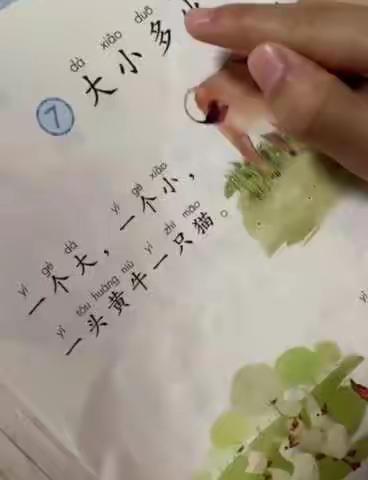 dà xiǎo duō
⑦ 大小多
yí gè dà yí gè xiǎo
一个大，一个小，
yì tóu huáng niú yì zhī māo
一头黄牛一只猫。